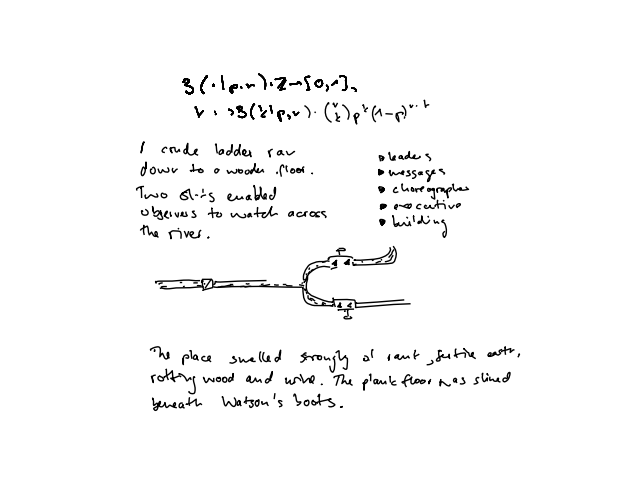 B(·|p,n):Z→[0,1],
k↦B(k|p,n):(n k)p^k(1-p)^n-k
A crude ladder ran
down to a wooden floor.
Two slits enabled
observers to watch across
the river.
leaders
messages
choreographer
executive
building
The place smelled strongly of rank, festive earth,
rotting wood and urine. The plank floor was slimed
beneath Watson's boots.